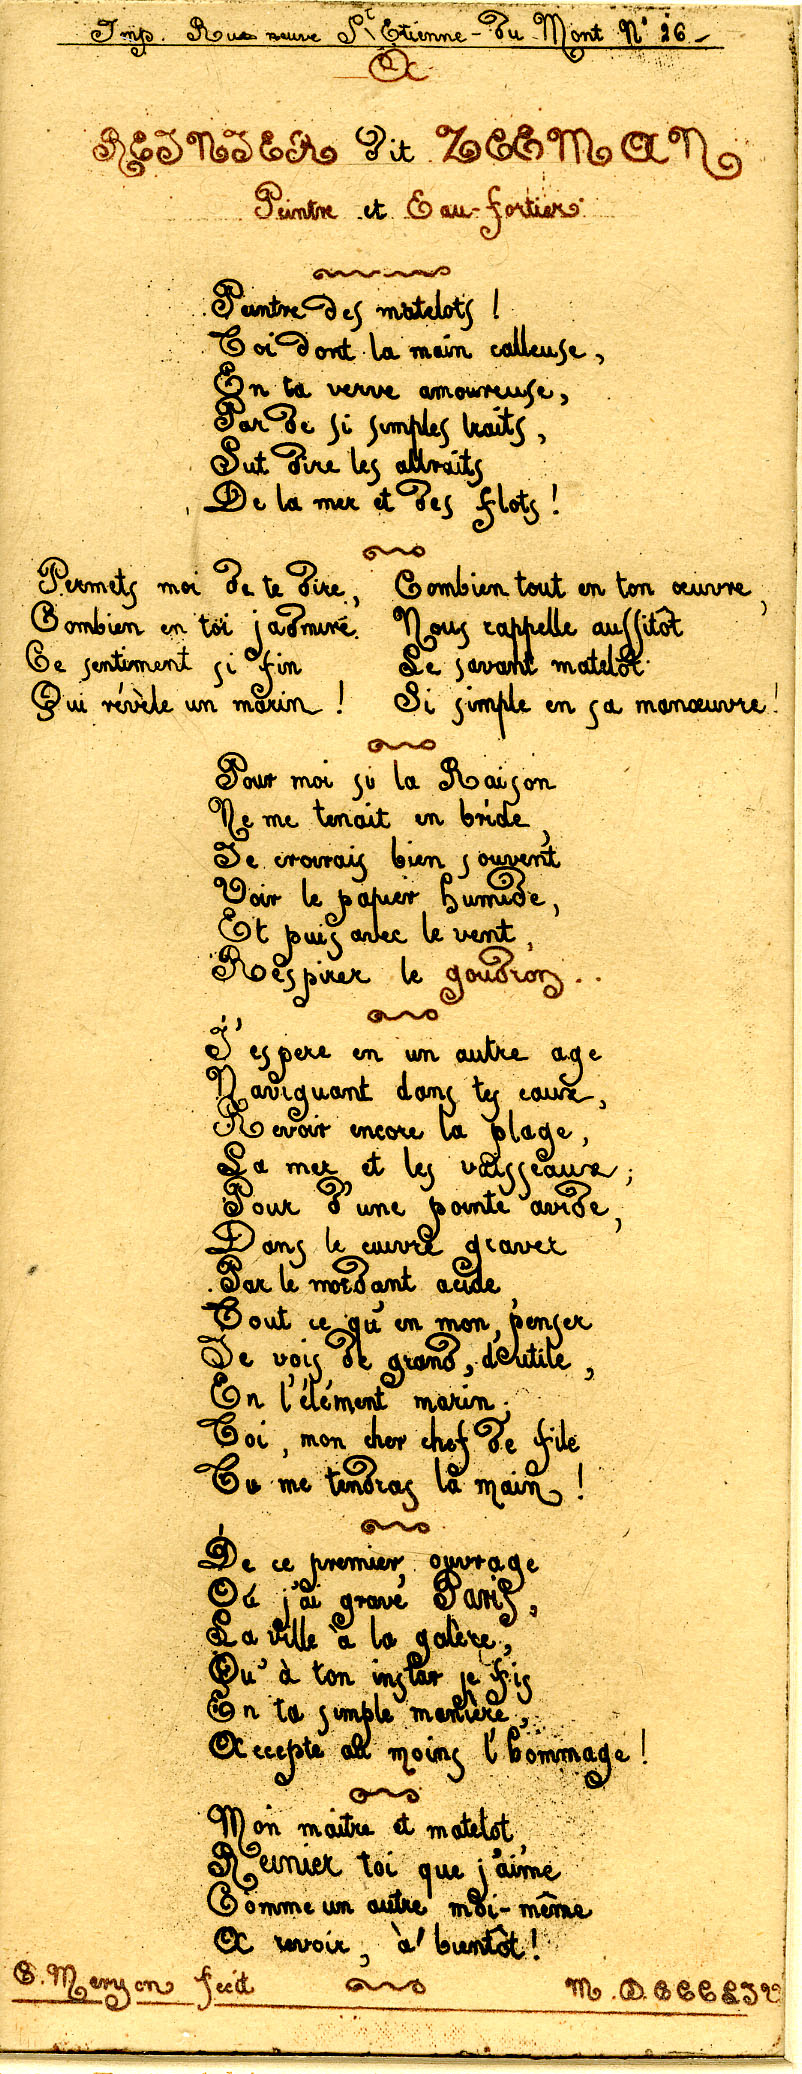 Imp. Rue neuve St Etienne-du-Mont N° 26
A
REINIER dit ZEEMAN
Peintre et Eau-fortier.
Peintre des matelots !
Toi dont la main calleuse,
En ta verve amoureuse,
Par de si simples traits,
Sut dire les attraits
De la mer et des flots !
Permets moi de te dire,
Combien en toi j'admire
Ce sentiment si fin
Qui révèle un marin !
Combien tout en ton œuvre,
Nous rappelle aussitôt
Le savant matelot
Si simple en sa manœuvre !
Pour moi si la Raison
Ne me tenait en bride,
Je croirais bien souvent
Voir le papier humide,
Et puis avec le vent,
Respirer le goudron..
J'espere en un autre age
Naviguant dans tes eaux,
Revoir encore la plage,
La mer et les vaisseaux ;
Pour d'une pointe avide,
Dans le cuivre graver
Par le mordant acide
Tout ce qu'en mon penser
Je vois de grand, d'utile,
En l'élément marin.
Toi, mon cher chef de file
Tu me tendras la main !
De ce premier ouvrage
Où j'ai gravé Paris,
La ville à la galère,
Qu'à ton instar je fis
En ta simple manière,
Accepte au moins l'hommage !
Mon maitre et matelot,
Reinier toi que j'aime
Comme un autre moi-même
A revoir, à bientôt !
C. Meryon fecit
M.D.CCCLIV